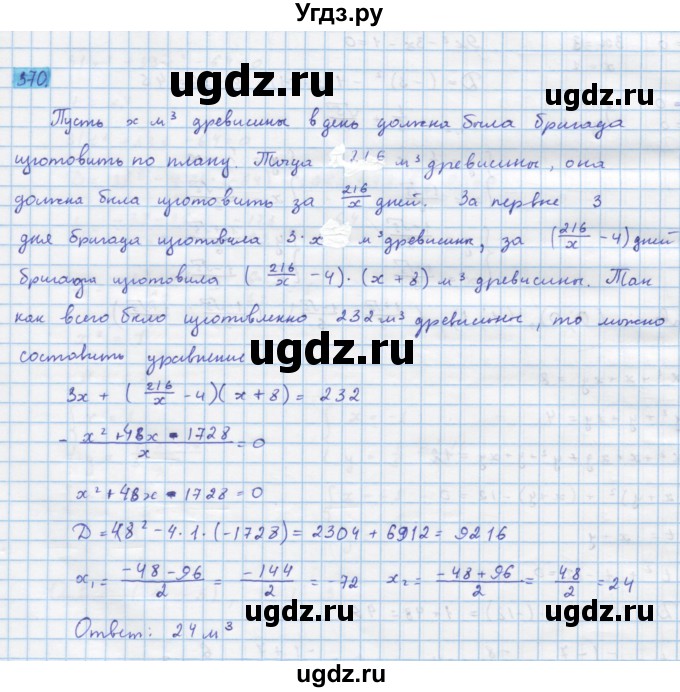 Угдз.ру
370.
ugdz.ru
ugdz.ru
Пусть x м³ древисины в день должна была бригада
изготовить по плану. Тогда 216 м³ древисины, она
должна была изготовить за 216/x дней. За первые 3
ugdz.ru
дня бригада изготовила 3·x м³ древисины, за (216/x - 4) дней
бригада изготовила (216/x - 4)·(x + 8) м³ древисины. Так
как всего было изготовленно 232 м³ древисины, то можно
составить уравнение
ugdz.ru
3x + (216/x - 4)(x + 8) = 232
- x² + 48x - 1728/x = 0
x² + 48x - 1728 = 0
D = 48² - 4·1·(-1728) = 2304 + 6912 = 9216
ugdz.ru
x₁ = -48 - 96/2 = -144/2 = -72 x₂ = -48 + 96/2 = 48/2 = 24
ugdz.ru
Ответ: 24 м³
ugdz.ru
ugdz.ru